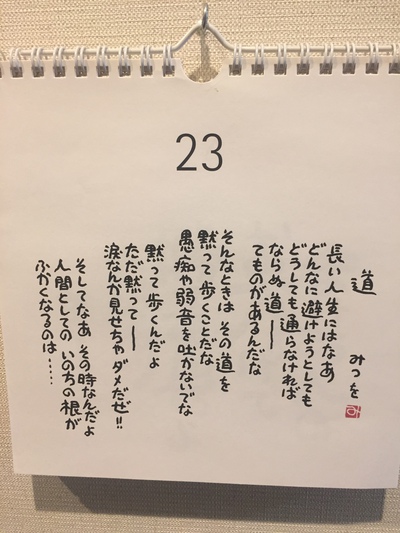 23
道
みつを
長い人生にはなあ
どんなに避けようとしても
どうしても通らなければ
ならぬ道——
てものがあるんだな
そんなときはその道を
黙って歩くことだな
愚痴や弱音を吐かないでな
黙って歩くんだよ
ただ黙って——
涙なんか見せちゃダメだぜ!!
そしてなあ その時なんだよ
人間としての いのちの根が
ふかくなるのは……